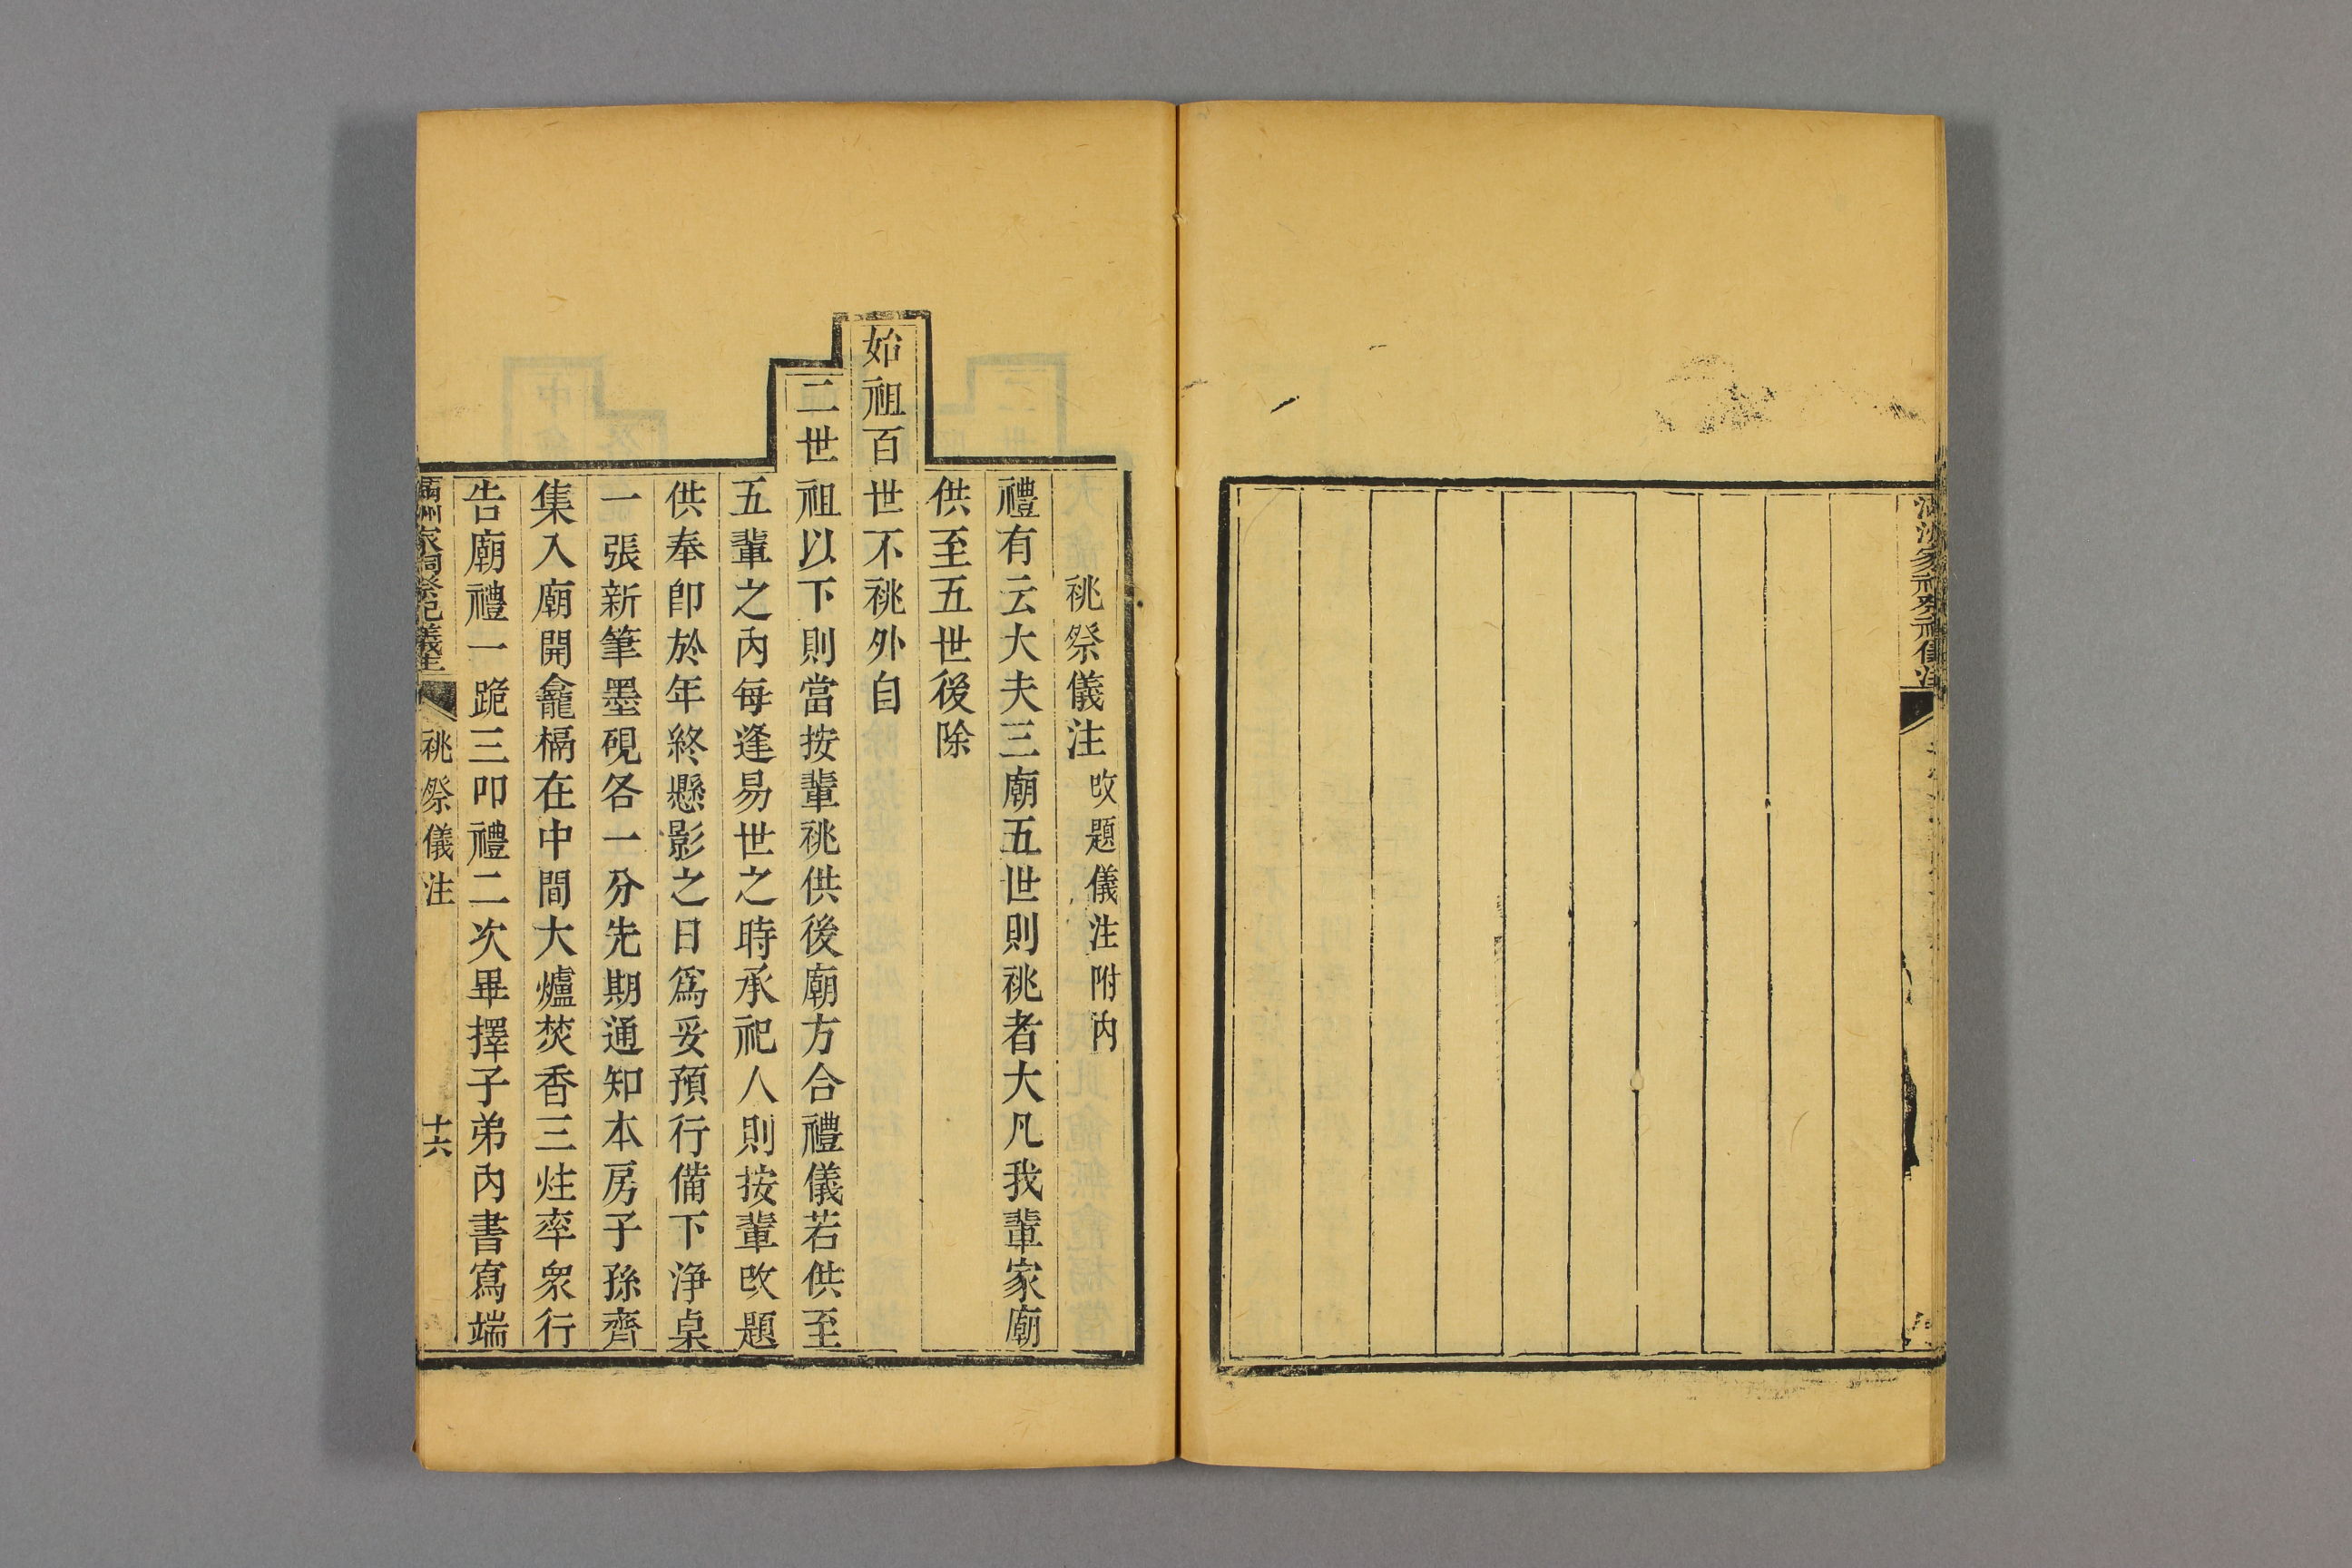 祧祭儀注 改題儀注附內
禮有云大夫三廟五世則祧者大凡我輩家廟
供至五世後除
始祖百世不祧外自
二世祖以下則當按輩祧供後廟方合禮儀若供至
五輩之內每逢易世之時承祀人則按輩改題
供奉卽於年終懸影之日爲妥預行備下淨桌
一張新筆墨硯各一分先期通知本房子孫齊
集入廟開龕槅在中間大爐焚香三炷率衆行
告廟禮一跪三叩禮二次畢擇子弟內書寫端
滿洲家祠祭祀儀注 祧祭儀注 十六